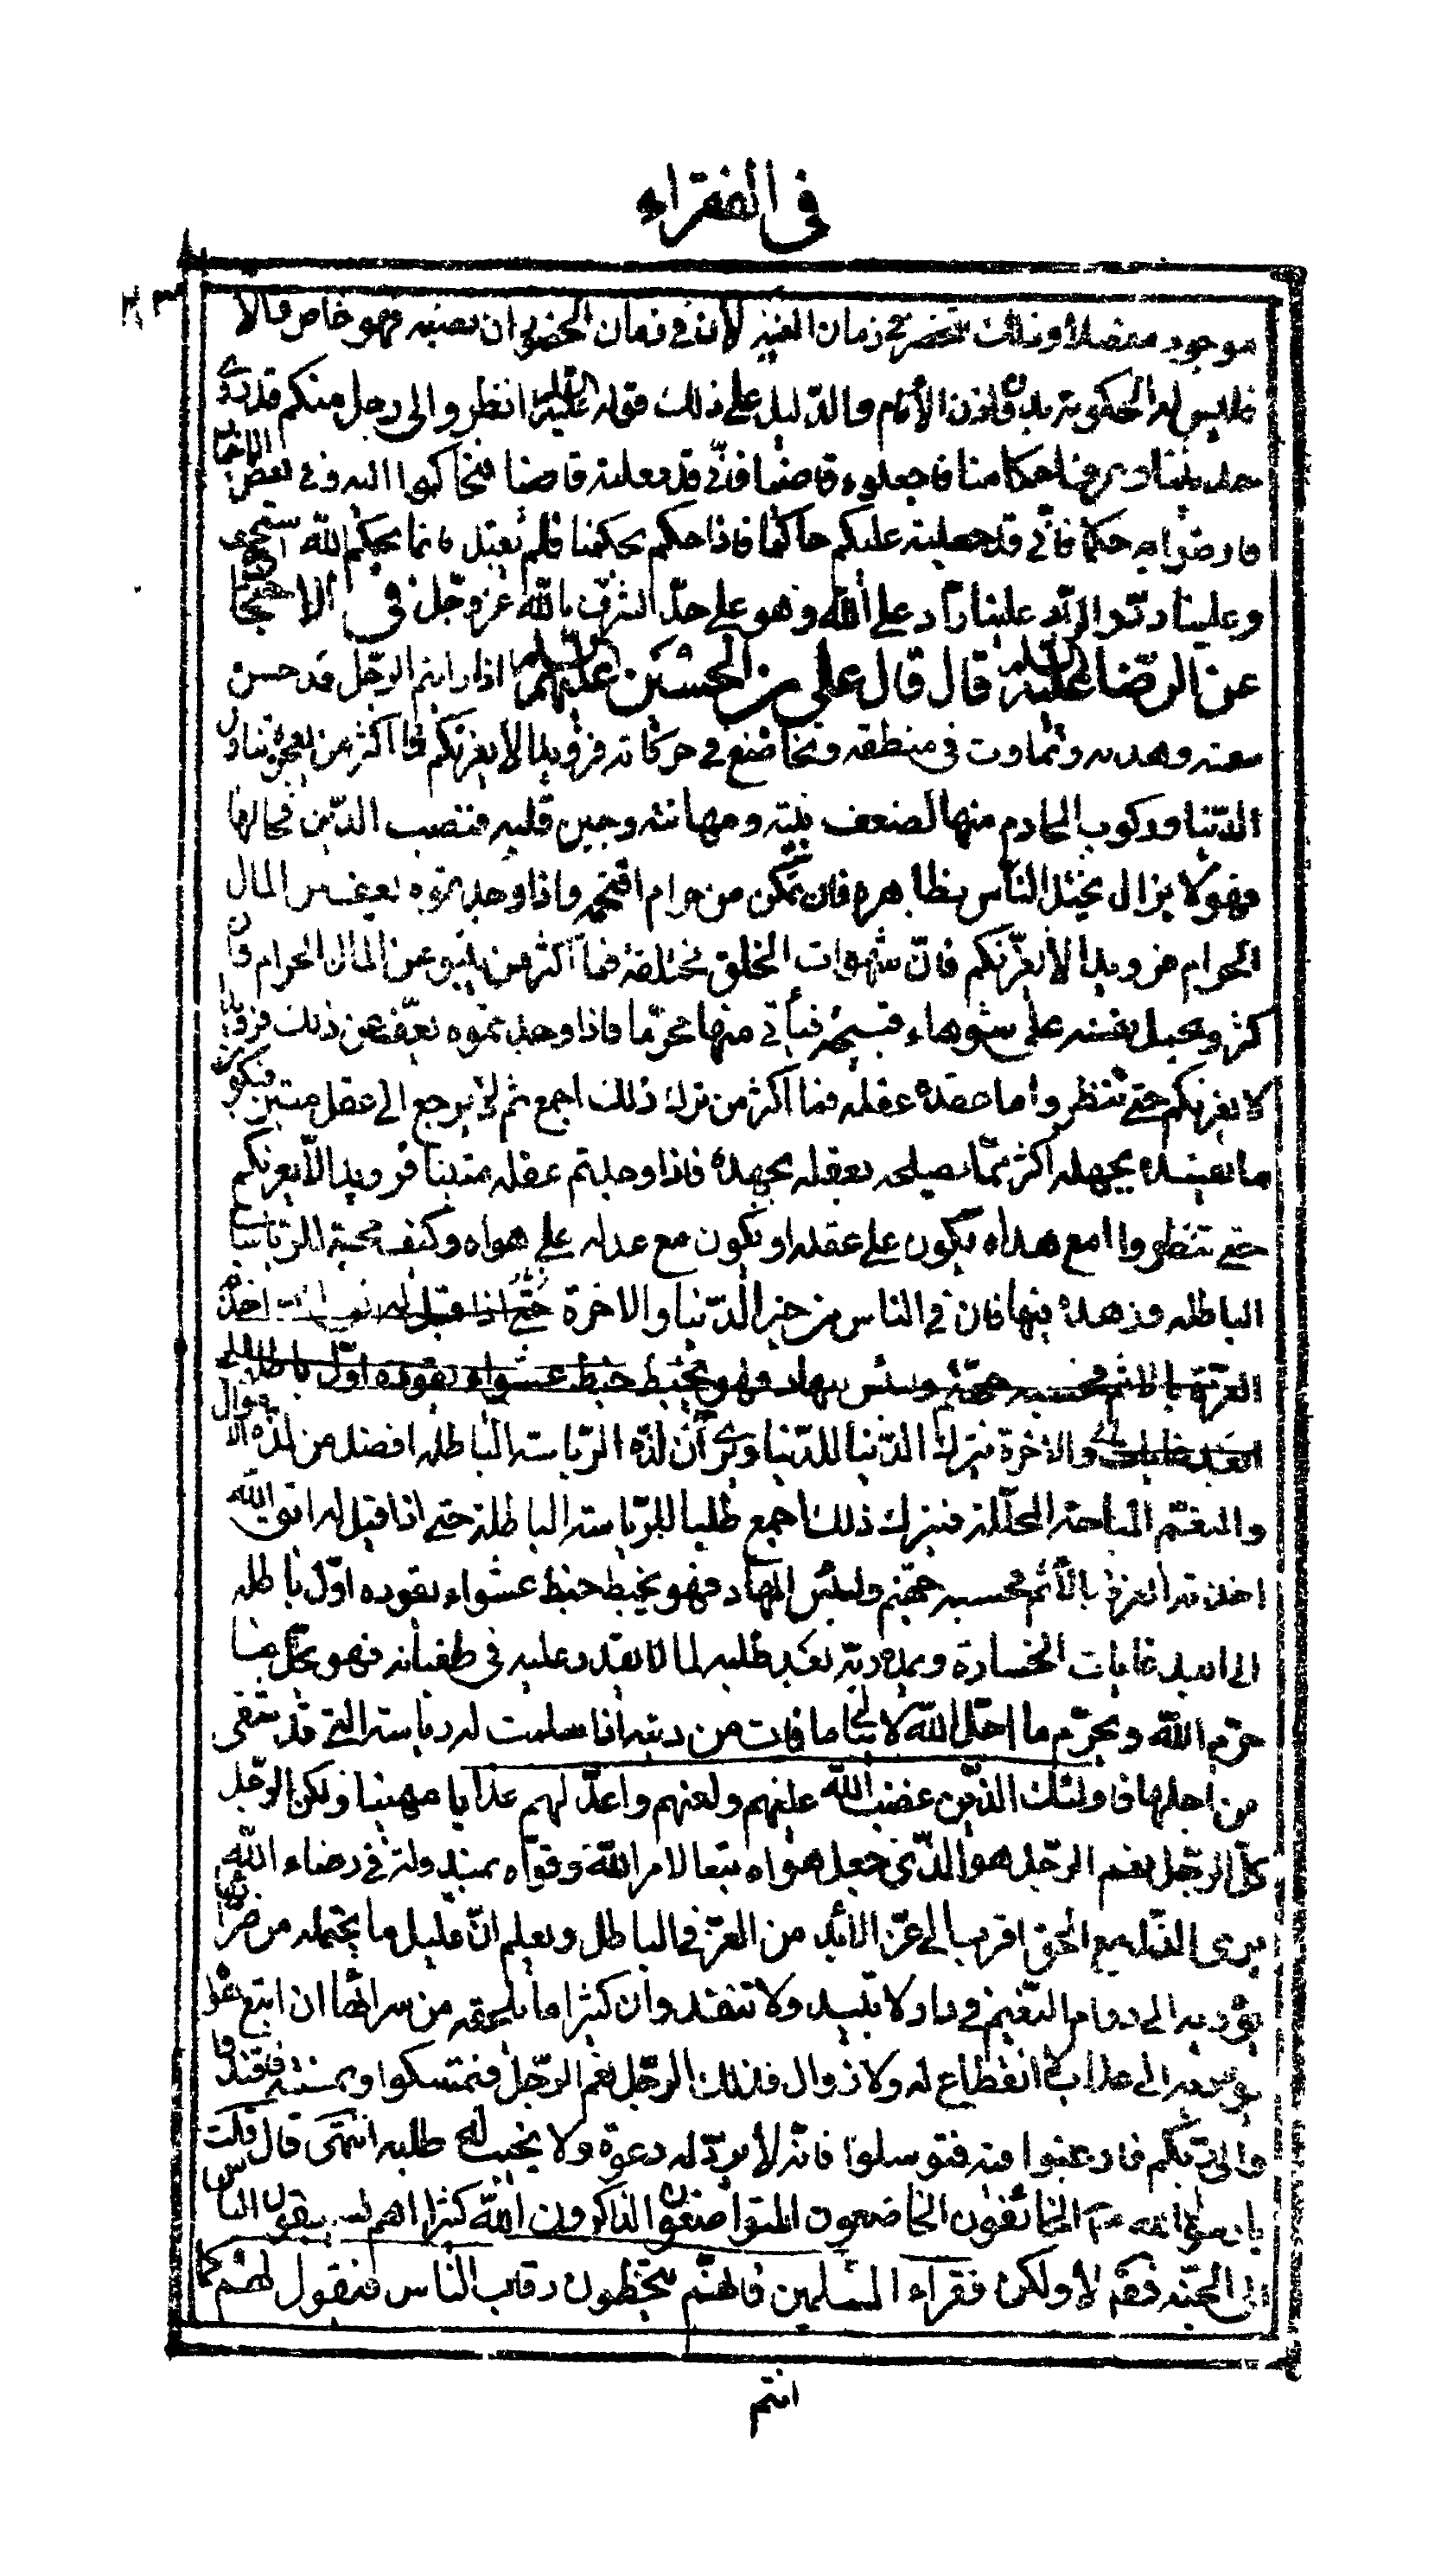 في الفقراء
موجود مفصلا وذلك في زمان الغيبة لأن في زمان الحضور ان نصبه فهو خاص والا
فليس له الحكومة بدون اذن الأمام والدليل على ذلك قوله عليه السلام انظروا الى رجل منكم قد روى
حديثنا وعرف احكامنا فاجعلوه قاضيا فانى قد جعلته قاضيا فتحاكموا اليه وفي بعض الاخبار
فارضوا به حكما فانى قد جعلته عليكم حاكما فاذا حكم بحكمنا فلم يقبل فانما بحكم الله استخف
وعلينا رد والراد علينا راد على الله وهو على حد الشرك بالله عز وجل في الاحتجاج
عن الرضا عليه السلام قال قال علي بن الحسين عليهم السلام اذا رايتم الرجل قد حسن
سمته وهديه وتماوت في منطقه وتخاضع في حركاته فرويدا لا يغرنكم فما اكثر من يعجزه تناول
الدنيا وركوب المحارم منها لضعف نيته ومهانته وجبن قلبه فنصب الدين فخا لها
فهو لا يزال يختل الناس بظاهره فان تمكن من حرام اقتحمه واذا وجدتموه يعف عن المال
الحرام فرويدا لا يغرنكم فان شهوات الخلق مختلفة فما اكثر من ينبو عن المال الحرام وان
كثر ويحمل نفسه على شوهاء قبيحة فيأتي منها محرما فاذا وجدتموه يعف عن ذلك فرويدا
لا يغرنكم حتى تنظروا ما عقده عقله فما اكثر من ترك ذلك اجمع ثم لا يرجع الى عقل متين فيكون
ما يفسده بجهله اكثر مما يصلحه بعقله فاذا وجدتم عقله متينا فرويدا لا يغرنكم
حتى تنظروا امع هواه يكون على عقله او يكون مع عقله على هواه وكيف محبته للرياسات
الباطلة وزهده فيها فان في الناس من خسر الدنيا والاخرة حتى اذا قيل له اتق الله اخذته
العزة بالاثم فحسبه جهنم ولبئس المهاد فهو يخبط خبط عشواء يقوده اول باطل الى
ابعد غايات والاخرة بترك الدنيا للدنيا ويرى ان لذة الرياسة الباطلة افضل من لذة الاموال
والنعم المباحة المحللة فيترك ذلك اجمع طلبا للرياسة الباطلة حتى اذا قيل له اتق الله
اخذته العزة بالأثم فحسبه جهنم ولبئس المهاد فهو يخبط خبط عشواء يقوده اول باطله
الى ابعد غايات الخسارة ويمده ربه بعد طلبه لما لا يقدر عليه في طغيانه فهو يحل ما
حرم الله ويحرم ما احل الله لا يبالي ما فات من دينه اذا سلمت له رياسته التي قد شقى
من اجلها فاولئك الذين غضب الله عليهم ولعنهم واعد لهم عذابا مهينا ولكن الرجل
كل الرجل نعم الرجل هو الذي جعل هواه تبعا لامر الله وقواه مبذولة في رضاء الله
يرى الذل مع الحق اقرب الى عز الأبد من العز في الباطل ويعلم ان قليل ما يحتمله من ضرائها
يؤديه الى دوام النعيم في دار لا تبيد ولا تنفد وان كثيرا ما يلحقه من سرائها ان اتبع هواه
يؤديه الى عذاب لا انقطاع له ولا زوال فذلك الرجل نعم الرجل فتمسكوا وبسنته فاقتدوا
والى ربكم فارغبوا وبه فتوسلوا فانه لا يرد له دعوة ولا يخيب له طلبه انتهى قال قلت
يا رسول الله الخائفون الخاضعون المتواضعون الذاكرون الله كثيرا اهم يسبقون الناس
الى الجنة فقال لا ولكن فقراء المسلمين فانهم يتخطون رقاب الناس فيقول لهم كما
انتم